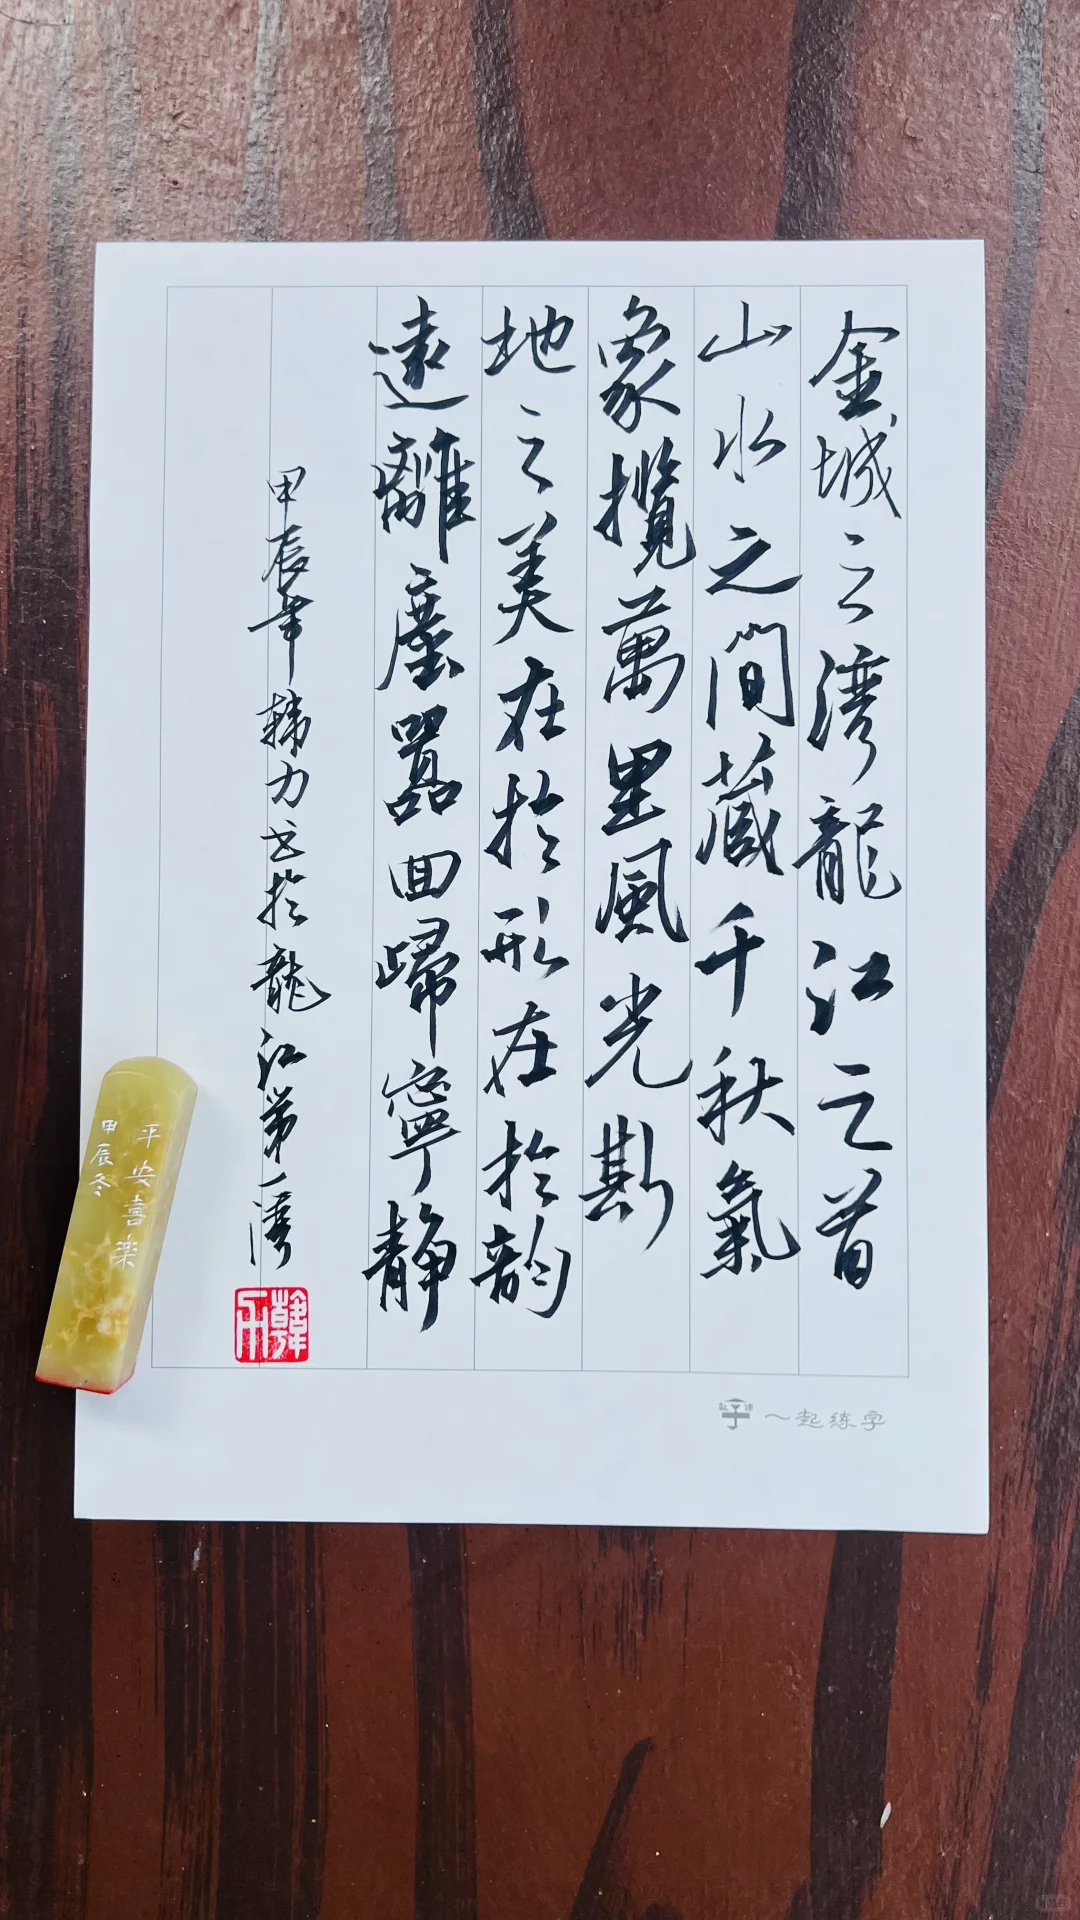 金城之湾龍江之首
山水之間藏千秋氣
象攬萬里風光斯
地之美在於形在於韵
遠離塵囂回歸寧静
甲辰年韓力书於龍江第一湾
平安喜楽
甲辰冬
一起练字